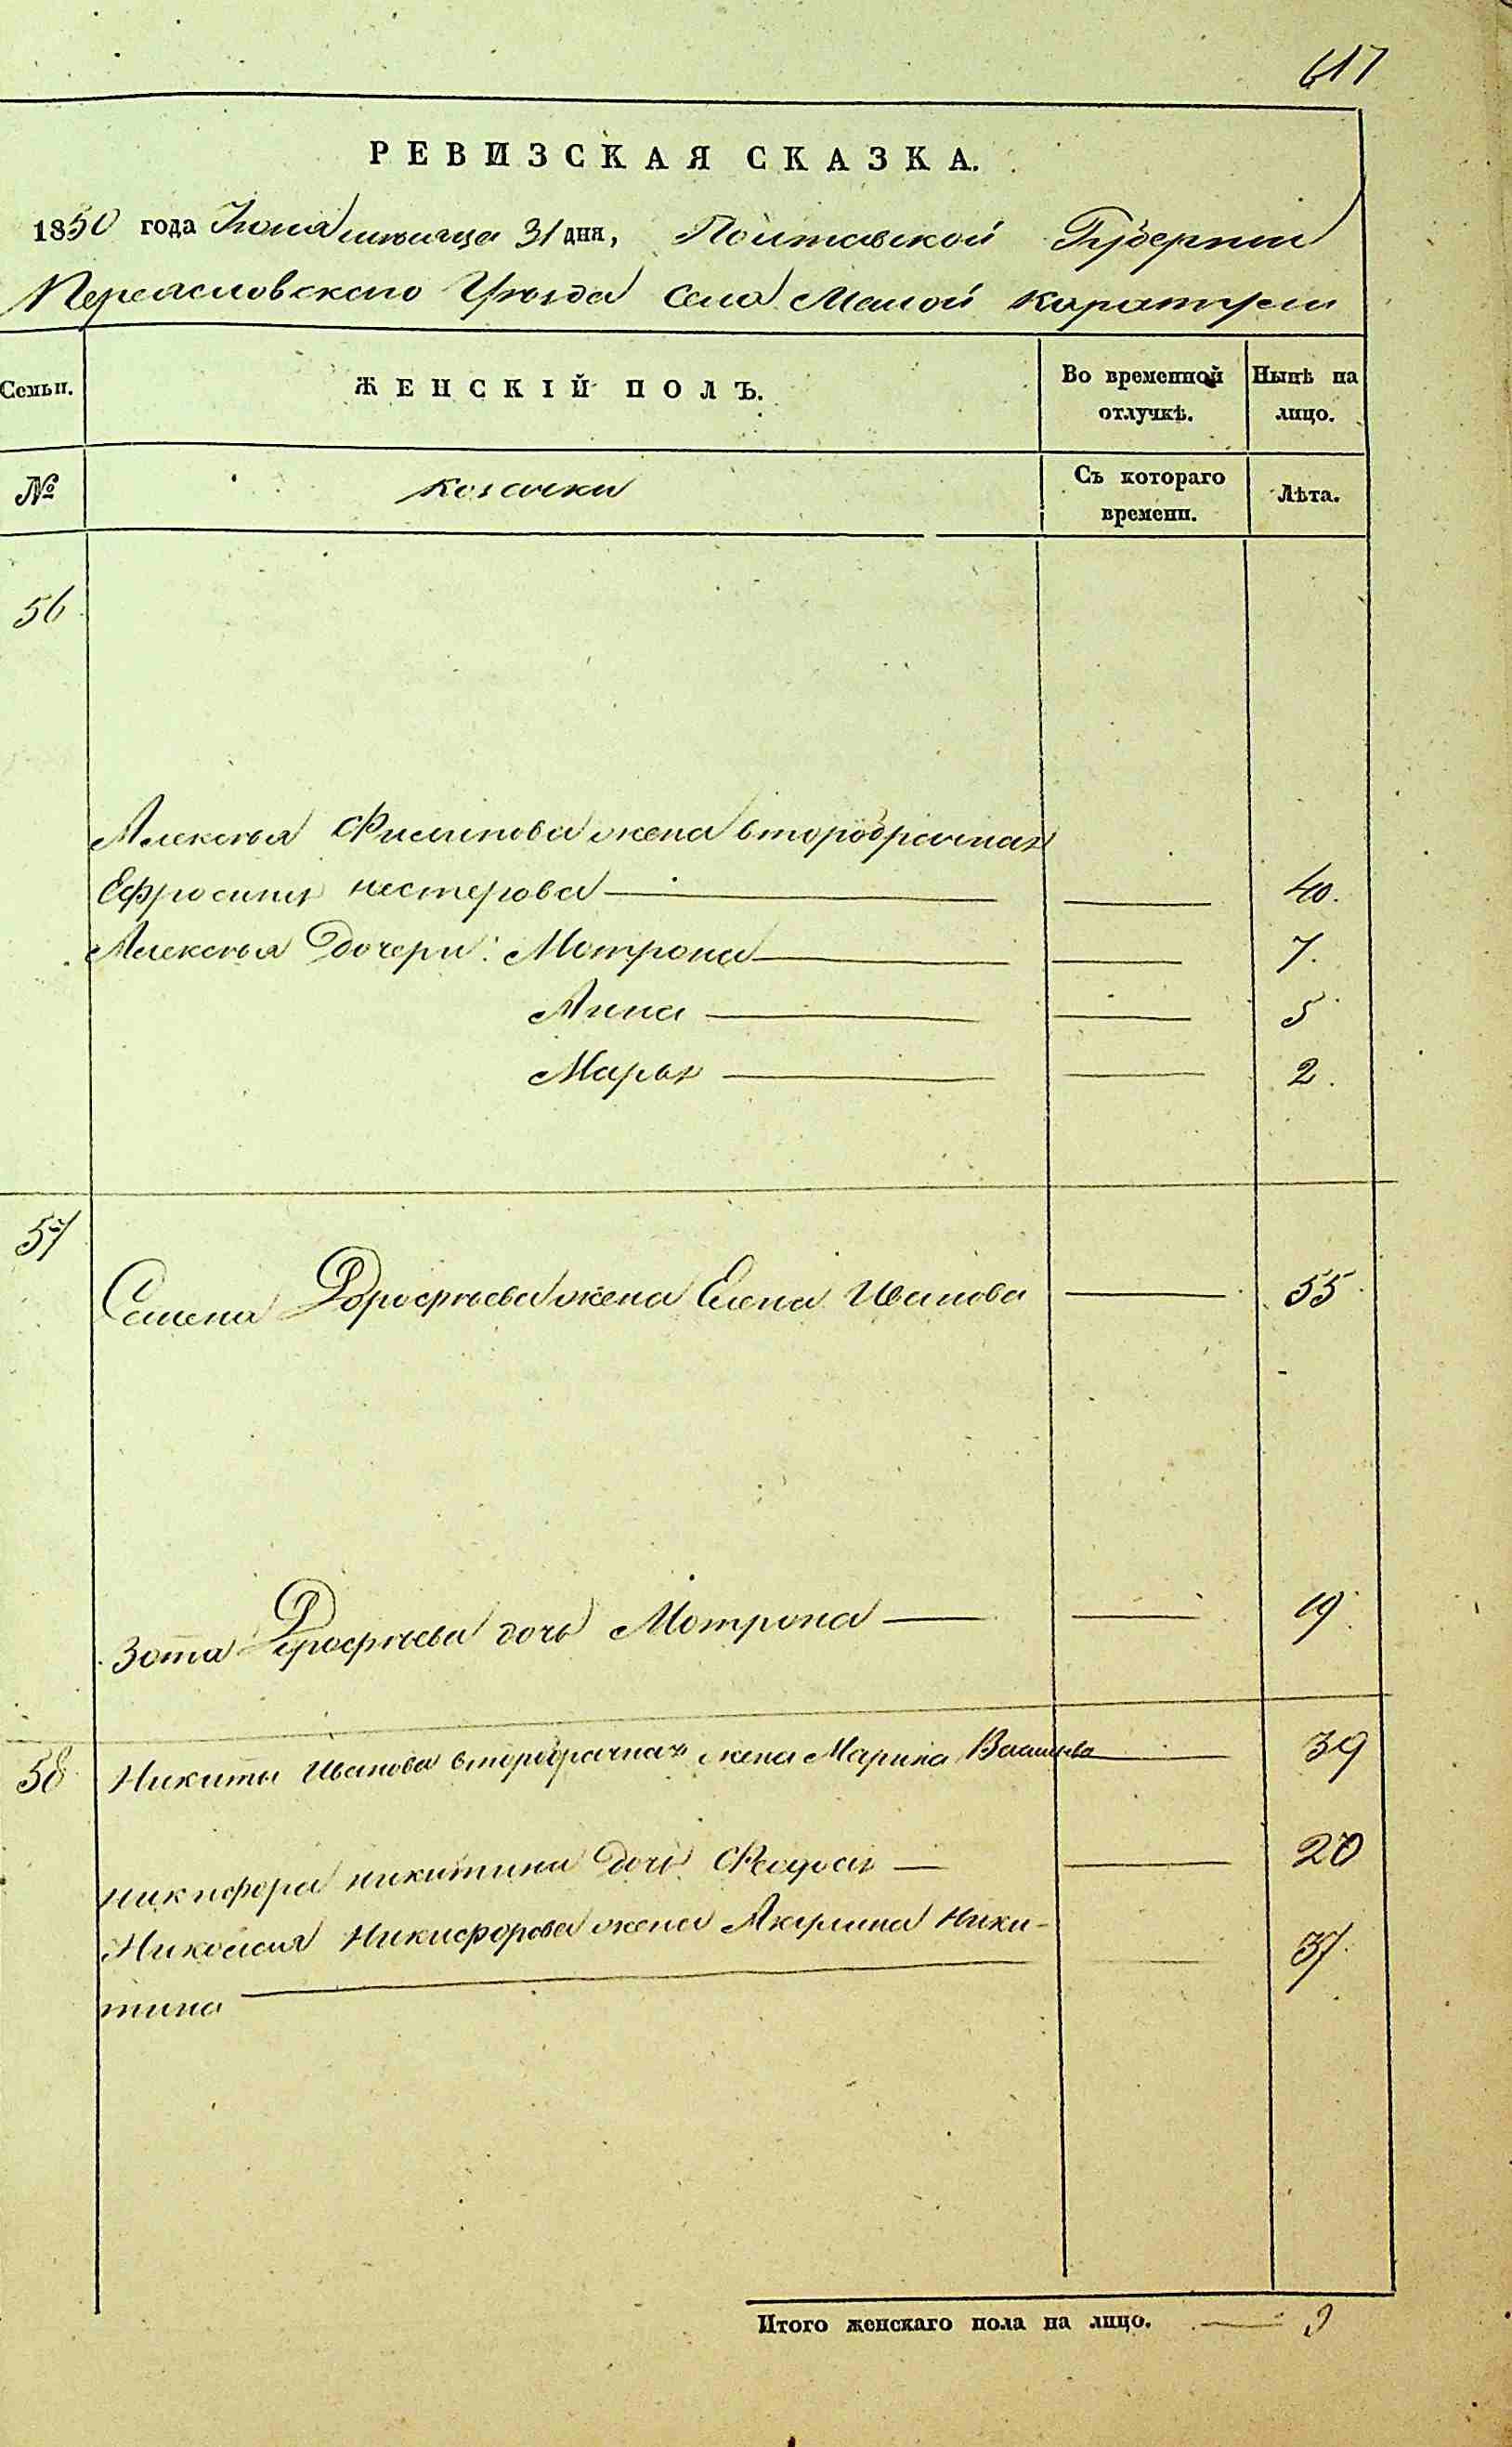 617
РЕВИЗСКАЯ СКАЗКА.
1850 года Июля месяца 31 дня, Полтавской Губернии
Переясловского Уѣзда Села Малой Каратули
Семьи. ЖЕНСКІЙ ПОЛЪ. Во временной отлучкѣ. Нынѣ на лицо.
№ козачки Съ котораго времени. Лѣта.
56
Алексѣя Филипова жена второбрачная
Ефросинія нестерова 40.
Алексѣя Дочери: Мотрона 7.
Анна 5
Марья 2.
57
Семена Дорофѣева жена Елена Иванова 55
Зота Дорофѣева дочь Мотрона 19
58 Никиты Иванова второбрачная жена Марина 39
никифора никитина дочь Феодосія 20
Николая Никифорова жена Акулина Ники-
тина 37
Итого женскаго пола на лицо. 9